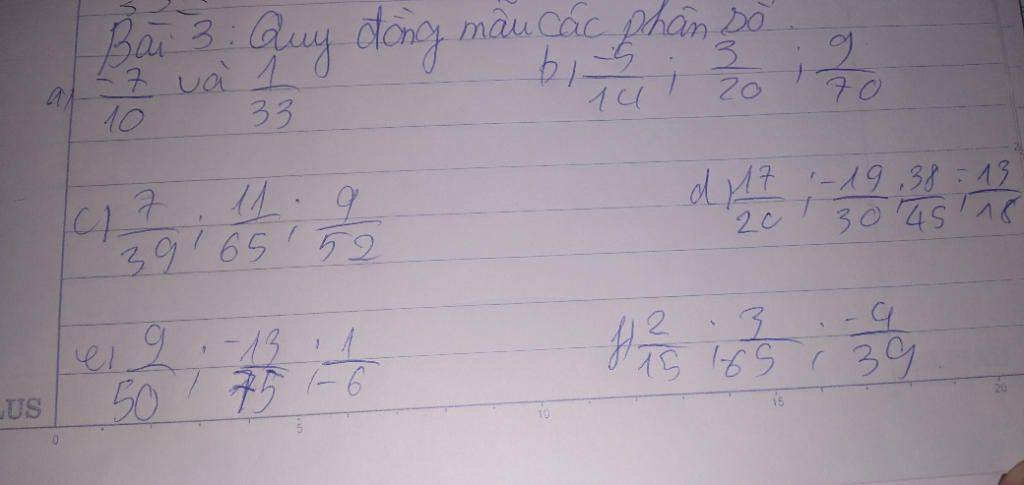 Bài 3: Quy đồng mẫu các phân số.
a) -7/10 và 1/33
b) -5/14 ; 3/20 ; 9/70
c) 7/39 ; 11/65 ; 9/52
d) 17/20 ; -19/30 ; 38/45 ; -13/18
e) 9/50 ; -13/75 ; 1/-6
f) 2/15 ; 3/-65 ; -4/39
LUS
0 5 10 15 20